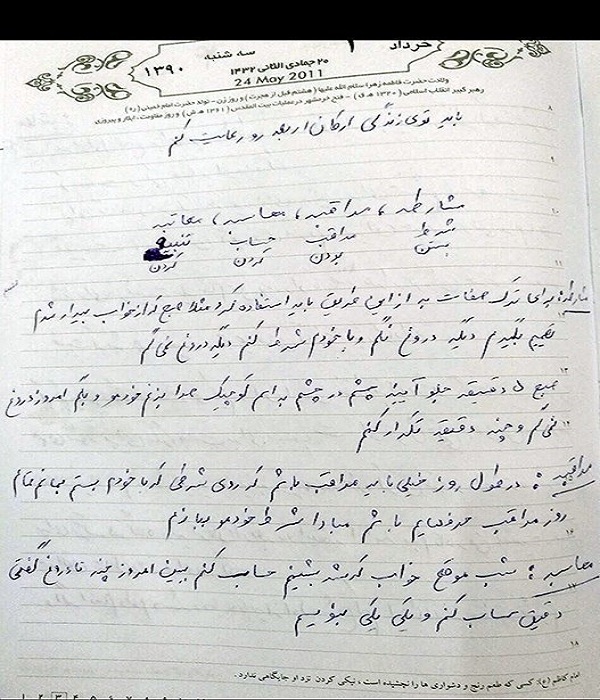 خرداد ۱ سه شنبه
۲۰ جمادی الثانی ۱۴۳۲ ۱۳۹۰
24 May 2011
ولادت حضرت فاطمه زهرا سلام الله علیها (هشتم قبل از هجرت) و روز زن - تولد حضرت امام خمینی (ره)
رهبر کبیر انقلاب اسلامی (۱۳۲۰ ه.ق) - فتح خرمشهر در عملیات بیت المقدس (۱۳۶۱ ه.ش) و روز مقاومت، ایثار و پیروزی
۸
باید توی زندگی ارکان اربعه رو رعایت کنم
۹
۱۰
مشارطه، مراقبه، محاسبه، معاتبه
شرط مراقب حساب تنبیه
بستن بودن کردن کردن
۱۱
مشارطه: برای ترک صفات بد از این طریق باید استفاده کرد مثلا صبح که از خواب بیدار شدم
تصمیم بگیرم دیگه دروغ نگم و با خودم شرط کنم دیگه دروغ نمی گم
صبح ۵ دقیقه جلو آیینه چشم در چشم به اسم کوچیک صدا بزنم خودمو و بگم امروز دروغ
نمی گم و چند دقیقه تکرار کنم
مراقبه: در طول روز خیلی باید مراقب باشم که روی شرطی که با خودم بستم بمانم تمام
روز مراقب حرفهایم باشم مبادا شرط خودمو ببازم
۱۶
محاسبه: شب موقع خواب که شد بشینم حساب کنم ببینم امروز چند تا دروغ گفتم
دقیق حساب کنم و یکی یکی بنویسم
۱۸
امام کاظم (ع): کسی که طعم رنج و دشواری ها را نچشیده است، نیکی کردن نزد او جایگاهی ندارد.
1 2 3 4 5 6 7 8 9